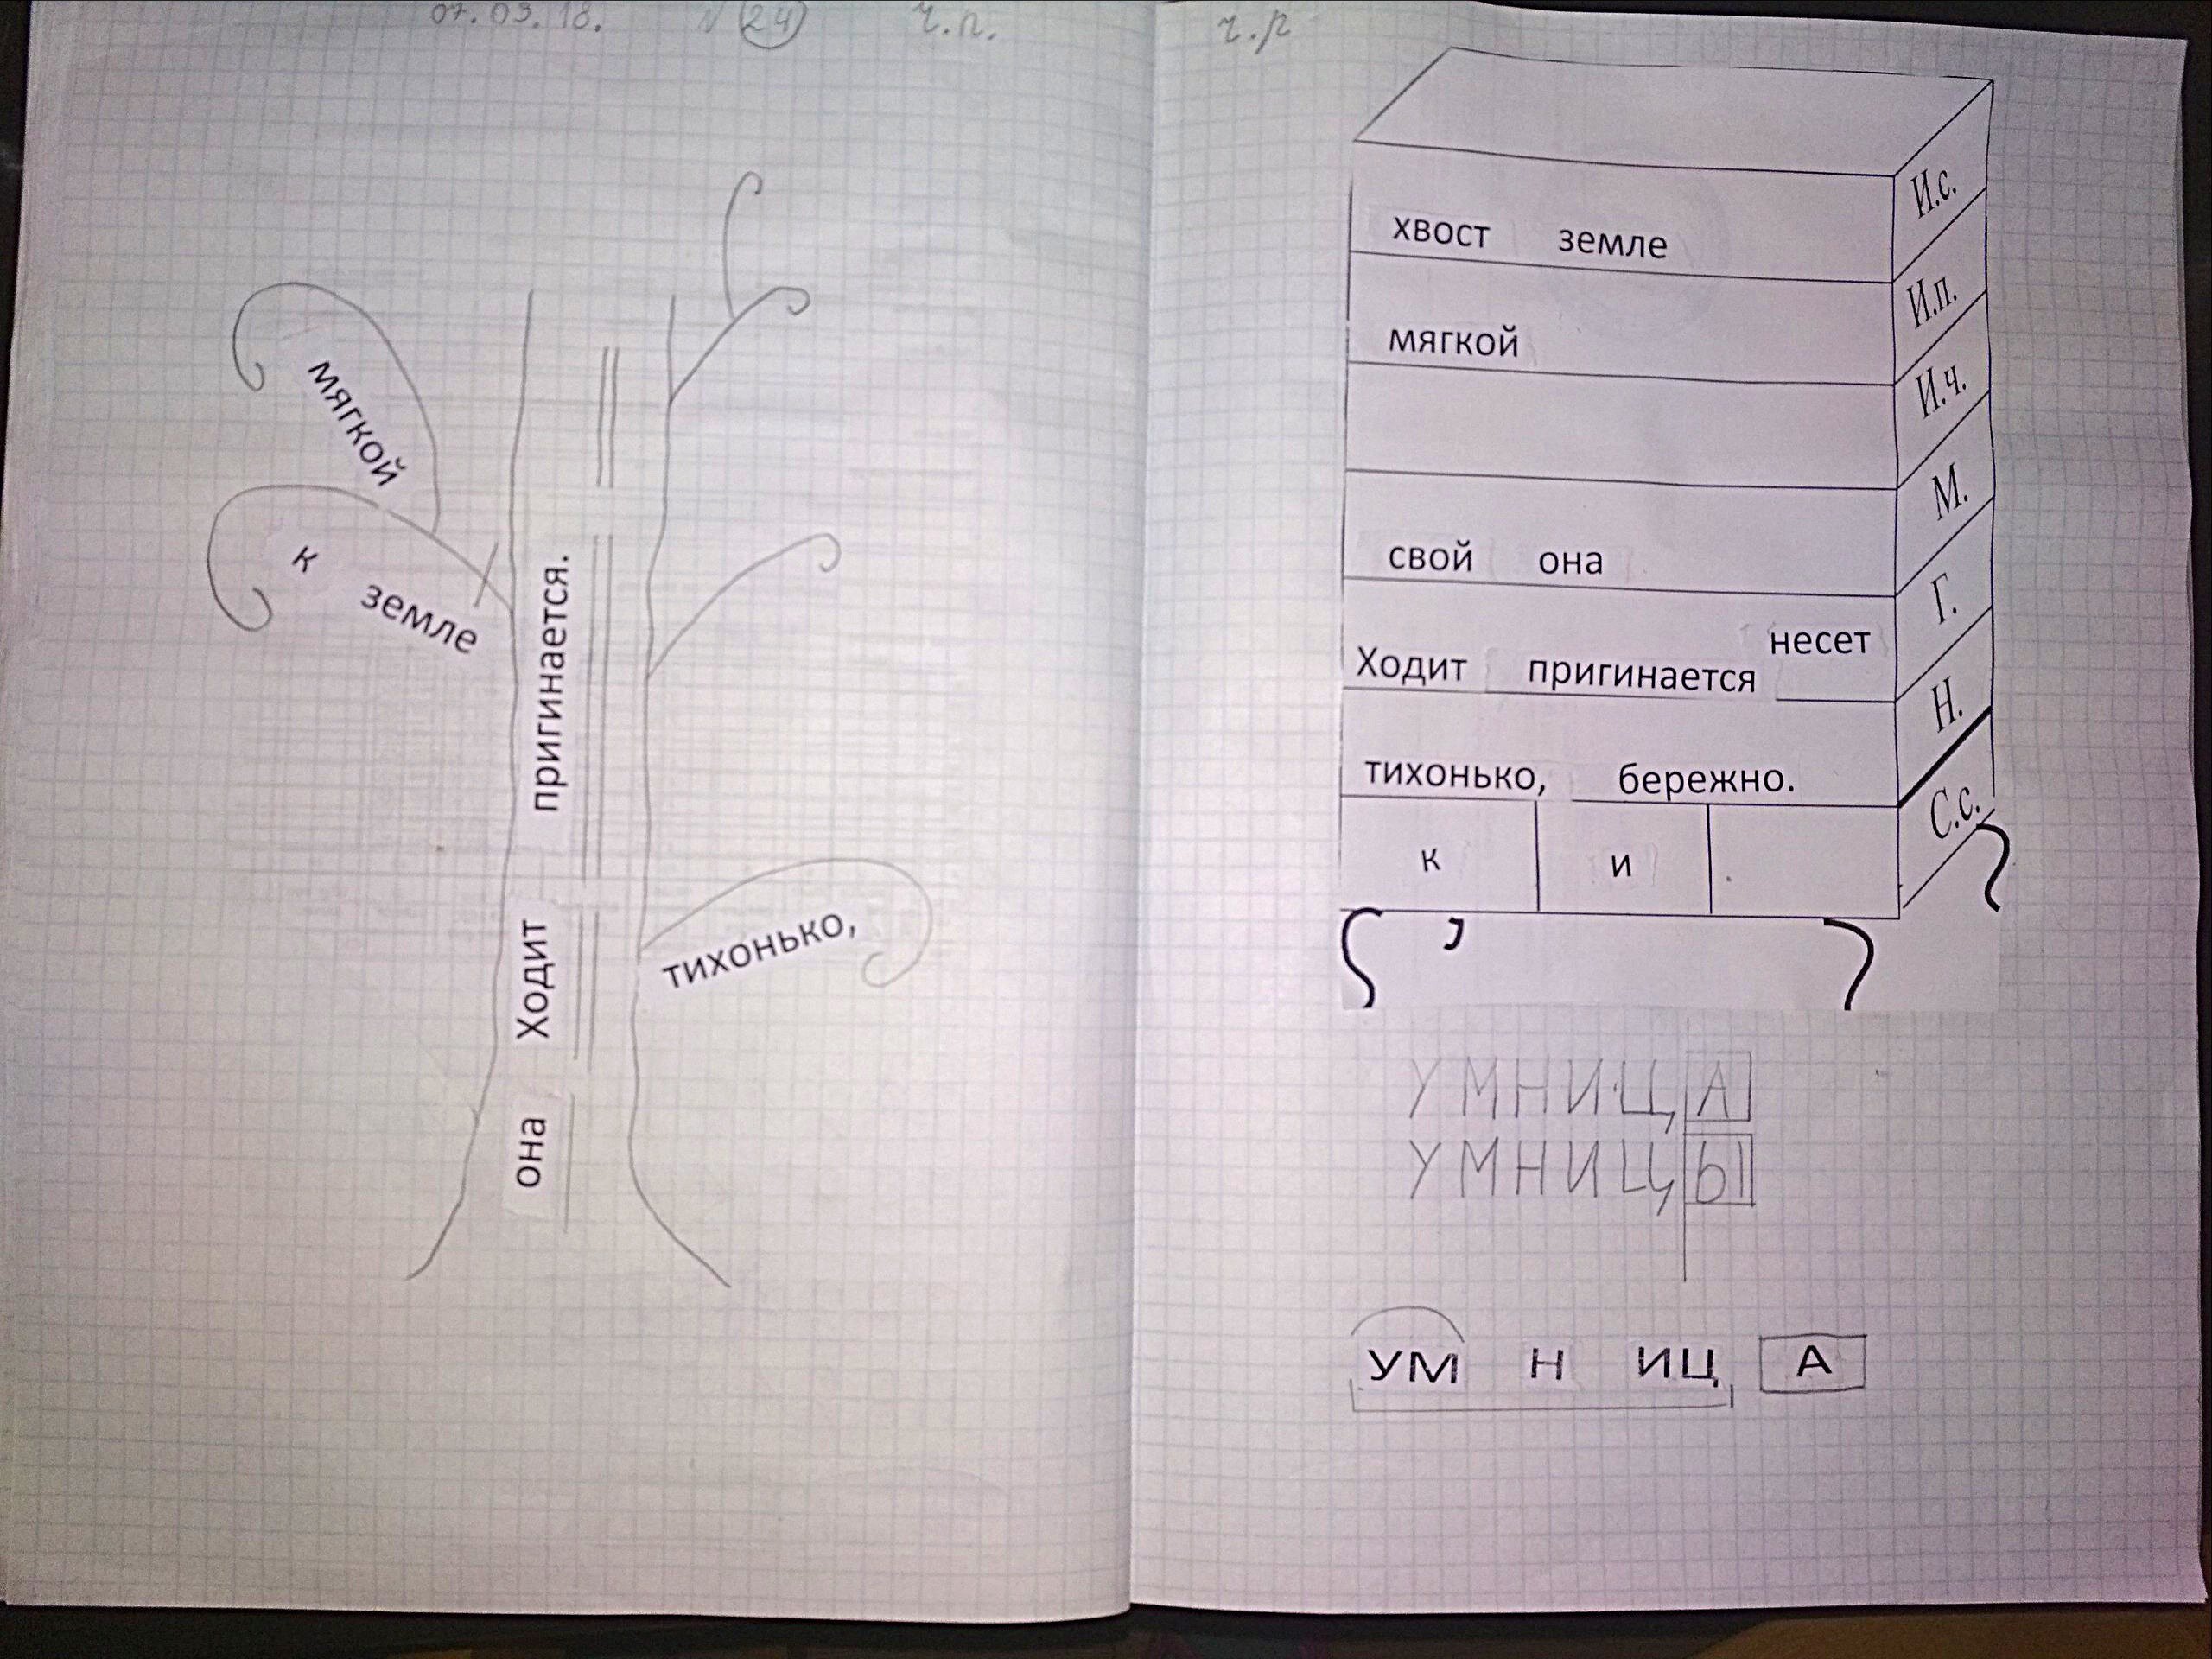 07.09.18. N 24 ч.п.
мягкой
к земле
пригинается.
Ходит
тихонько,
она
ч.р
хвост земле И.с.
мягкой И.п.
И.ч.
свой она М.
Ходит пригинается несет Г.
тихонько, бережно. Н.
к и С.с.
УМНИЦА
УМНИЦЫ
УМ Н ИЦ А